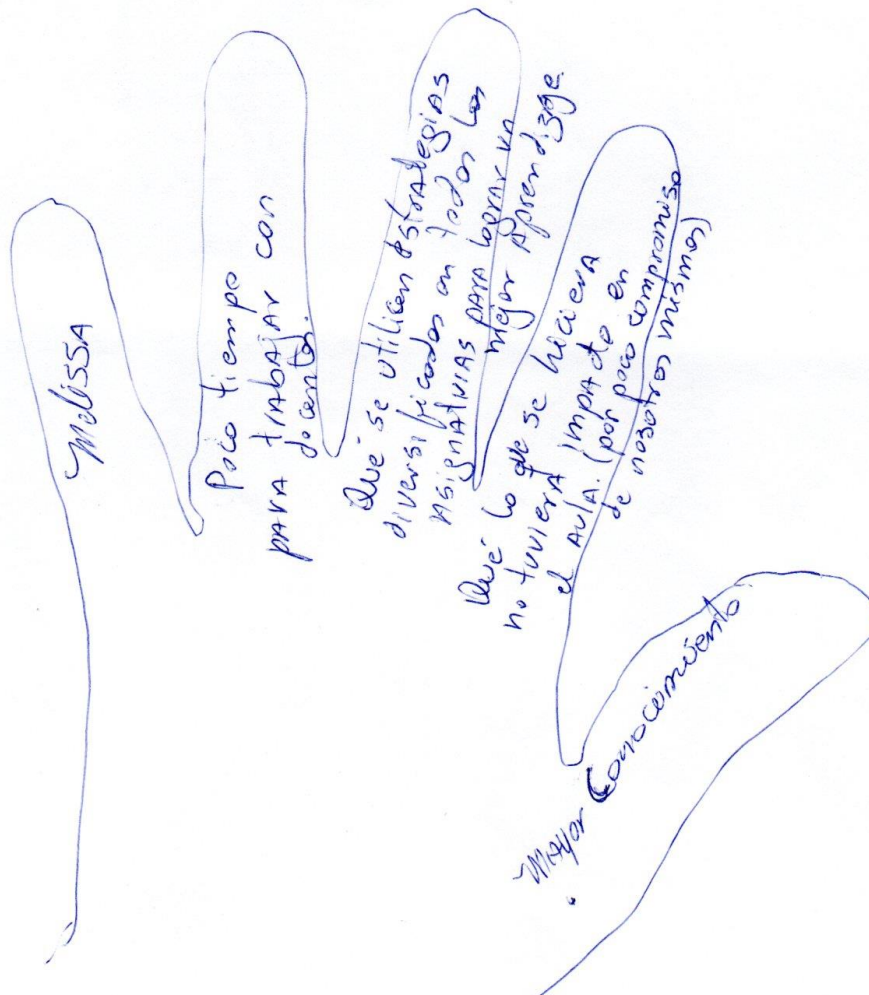 Melissa
Poco tiempo
para trabajar con
docentes.
Qué se utilicen estrategias
diversificadas en todas las
asignaturas para lograr un
mejor aprendizage.
Qué lo que se hiciera
no tuviera impacto en
el aula. (por poco compromiso
de nosotros mismos)
. Mayor Conocimiento